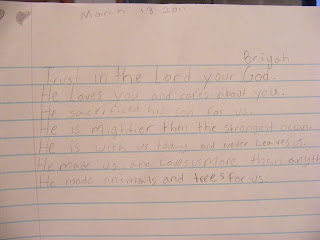 March 13-2011
Briyah
Trust in the Lord your God.
He Loves you and cares about you.
He sacrificed his son for us.
He is mightier then the strongest ocean.
He is with us today and never Leaves us.
He made us and Loves us More than anyth
He made animals and trees for us.